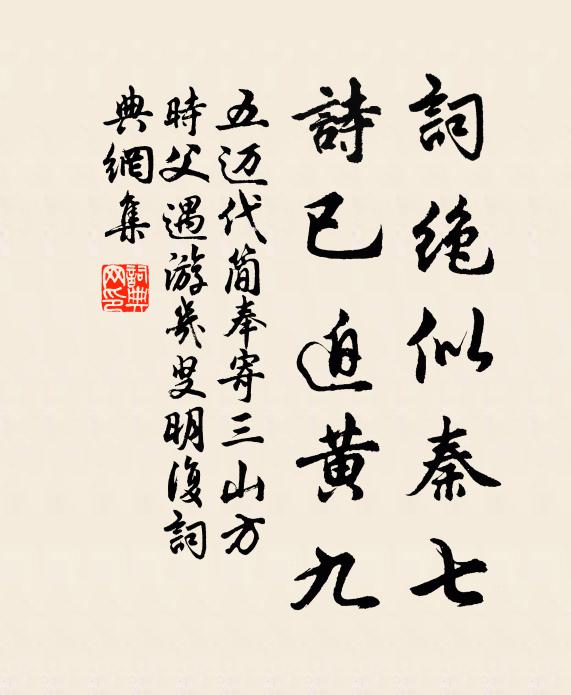 詞絶似秦七
詩已迫黄九
五迈代简奉寄三山方
時父遇游幾叟明復詞
典網集
詞典網印